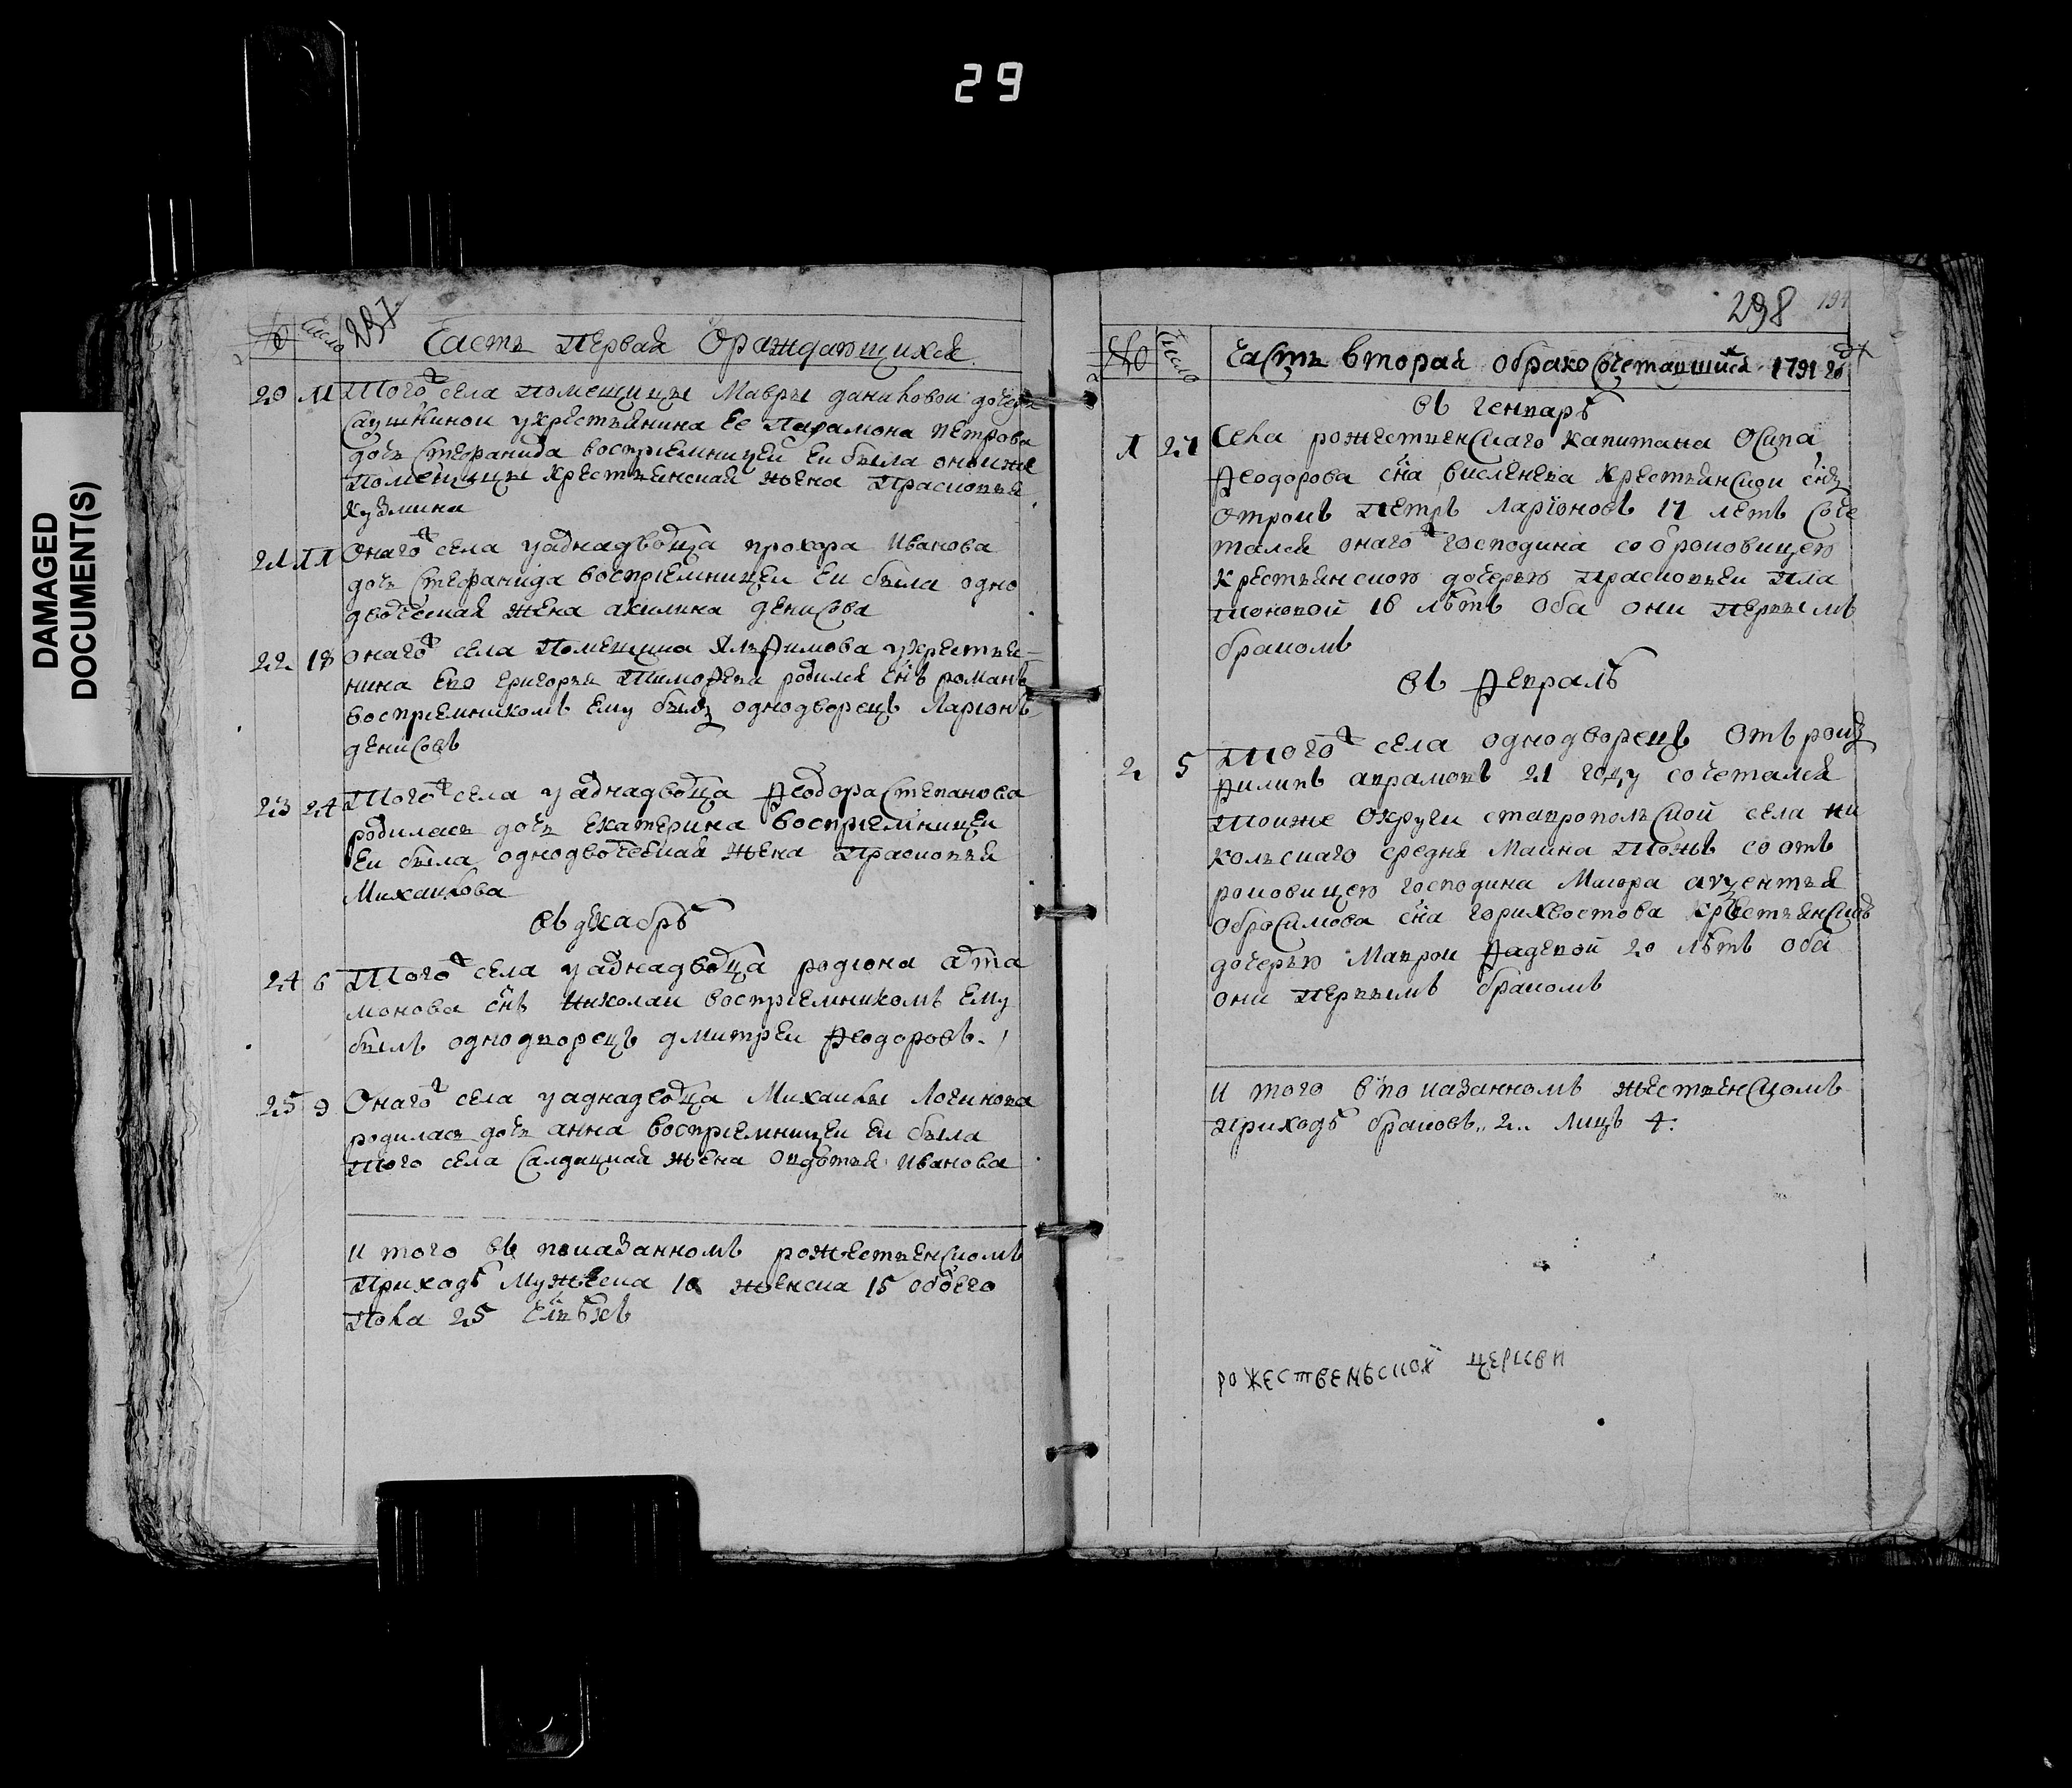 29
DAMAGED
DOCUMENT(S)
№ Число 297
Часть первая ораждающихся
20 11 Того ж села помещицы Мавры даниловои дочери
Саушкинои укрестьянина Ее Парамона петрова
дочь Стефанида восприемницеи Еи была оноиже
помещицы крестьянская жена Прасковья
кузмина
21 11 Онаго ж села уаднадворца прохора Иванова
дочь Стефанида восприемницеи Еи была одно
дворческая жена акилина денисова
22 18 онаго ж села Помещика укрестьяе-
нина Ево григорья Тимофева родился снъ романъ
восприемникомъ Ему былъ однодворецъ Ларионъ
денисовъ
23 24 Того ж села уаднадворца Ѳеодора Степанова
родилась дочь Екатерина восприемницеи
Еи была однодворческая жена Прасковья
Михаилова
въ декабрѣ
24 6 Того ж села уаднадворца родиона арта
монова снъ Николаи восприемникомъ Ему
былъ однодворецъ дмитреи Ѳеодоровъ.
25 9 Онаго ж села уаднадворца Михаилы Логинова
родилась дочь анна восприемницеи Еи была
того села Салдацкая жена Овдотья Иванова
и того въ показанномъ рожественскомъ
Приходѣ Мужеска 10 женска 15 обоего
Пола 25 члвѣкъ
298 191
№ Число Часть вторая обракосочетавшихся 1791 году
въ генварѣ
1 27 Села рожественскаго капитана Осипа
Ѳеодорова сна висленева крестьянскои снъ
отрокъ Петръ Ларионовъ 17 летъ соче
тался онаго ж господина сооброковицею
крестьянскою дочерью прасковьеи Пла
тоновой 16 лѣтъ оба они первымъ
бракомъ
въ Ѳевралѣ
2 5 Того ж села однодворецъ Отърокъ
Ѳилипъ аврамовъ 21 году сочетался
Тоиже округи ставропольской села ни
кольскаго средня Маина Тожъ соотъ
роковицею господина Маиора
обросимова сна горихвостова крестьянскою
дочерью Маврои Ѳадевой 20 лѣтъ оба
они первымъ бракомъ
и того впоказанномъ жественскомъ
приходѣ браковъ.. 2.. лицъ 4.
рожественьской церкви